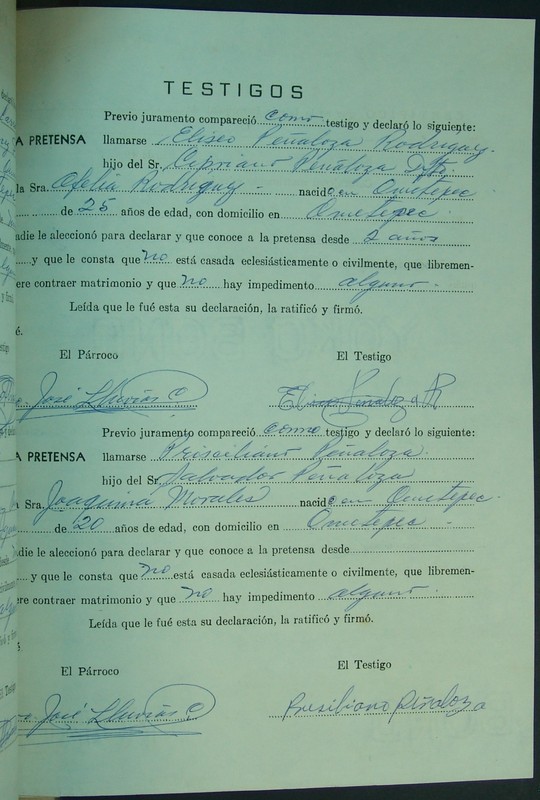 TESTIGOS
Previo juramento compareció como testigo y declaró lo siguiente:
A PRETENSA llamarse Eliseo Peñaloza Rodriguez.
hijo del Sr. Cipriano Peñaloza
la Sra. Ofelia Rodriguez - nacido en Ometepec
de 25 años de edad, con domicilio en Ometepec.
adie le aleccionó para declarar y que conoce a la pretensa desde 2 años
y que le consta que no está casada eclesiásticamente o civilmente, que libremen-
ere contraer matrimonio y que no hay impedimento alguno -
Leída que le fué esta su declaración, la ratificó y firmó.
é.
El Párroco El Testigo
José Lluvias C
Previo juramento compareció como testigo y declaró lo siguiente:
A PRETENSA llamarse Prisciliano Peñaloza
hijo del Sr. Salvador Peñaloza
Sra. Joaquina Morales nacido en Ometepec.
de 20 años de edad, con domicilio en Ometepec -
adie le aleccionó para declarar y que conoce a la pretensa desde
y que le consta que no está casada eclesiásticamente o civilmente, que libremen-
ere contraer matrimonio y que no hay impedimento alguno.
Leída que le fué esta su declaración, la ratificó y firmó.
El Párroco El Testigo
José Lluvias C Presiliano Peñaloza